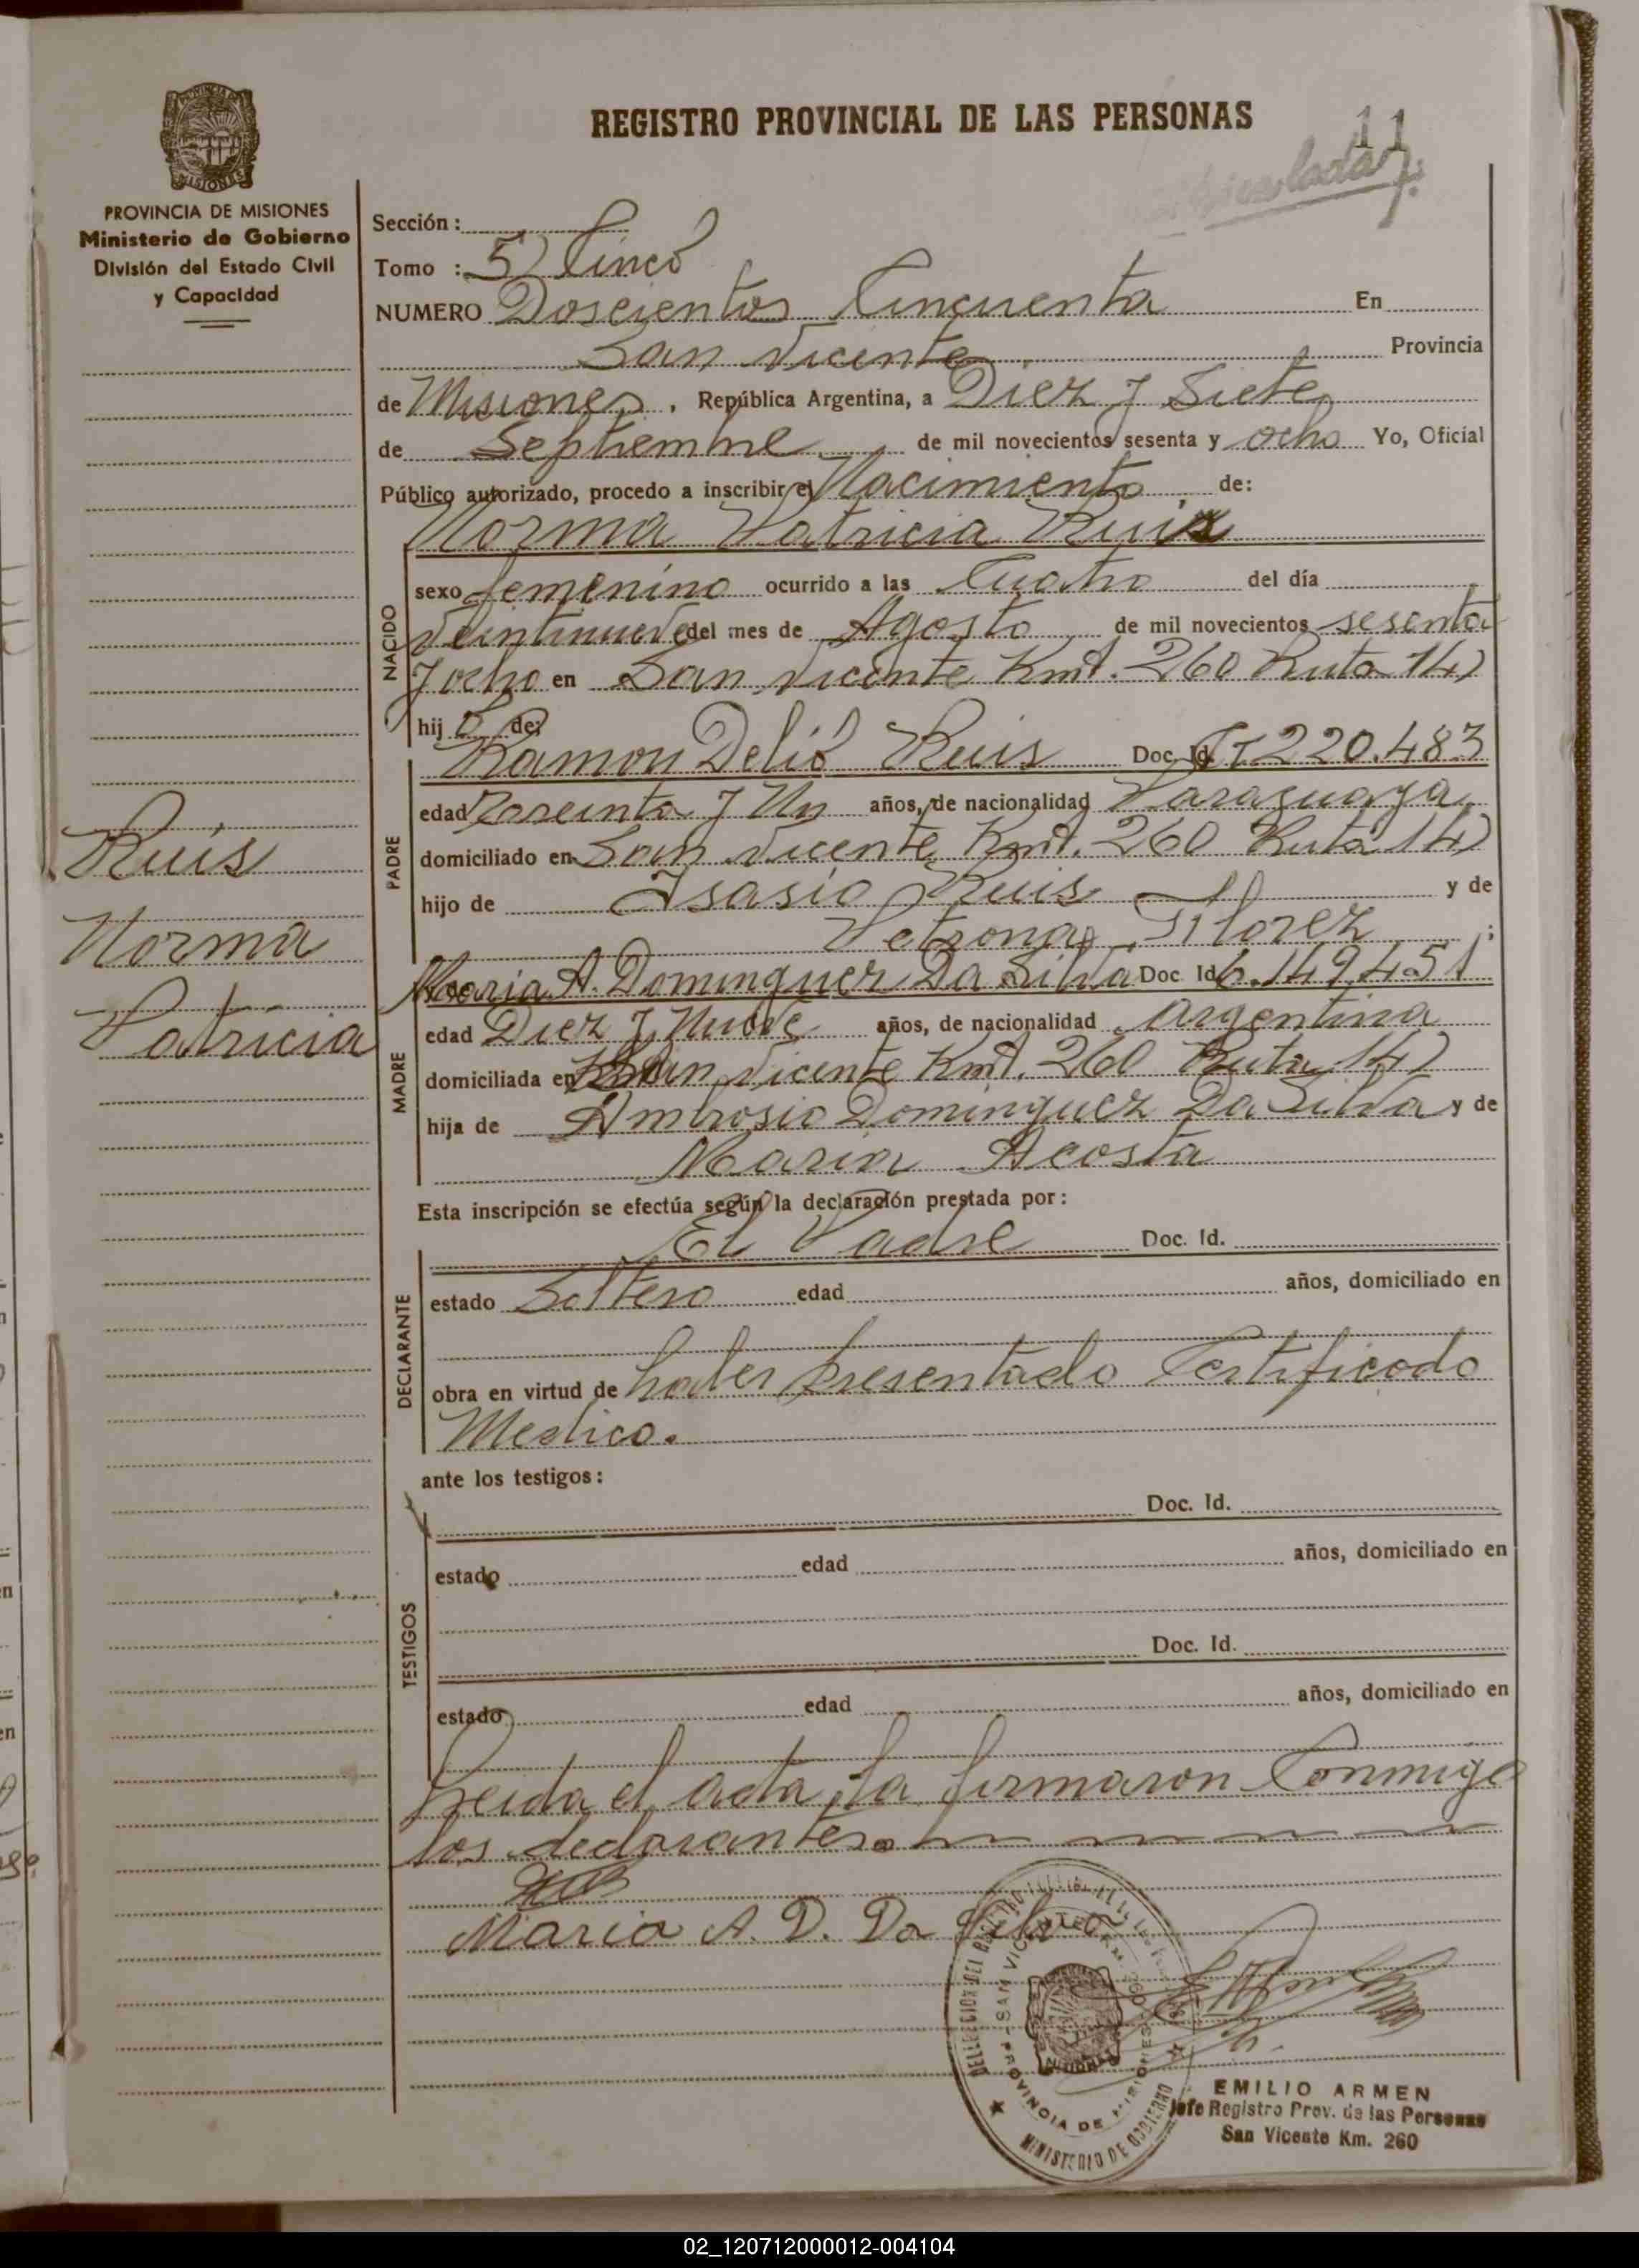 REGISTRO PROVINCIAL DE LAS PERSONAS
11
PROVINCIA DE MISIONES
Ministerio de Gobierno
División del Estado Civil
y Capacidad
Sección:
Tomo : 5) Cinco
NUMERO Doscientos Cincuenta En
San Vicente Provincia
de Misiones, República Argentina, a Diez y Siete
de Septiembre de mil novecientos sesenta y ocho Yo, Oficial
Público autorizado, procedo a inscribir el Nacimiento de:
Norma Patricia Ruis
NACIDO
sexo femenino ocurrido a las Cuatro del día
Veintinueve del mes de Agosto de mil novecientos sesenta
y ocho en San Vicente Kmt. 260 Ruta 14)
hij de:
PADRE
Ramon Delio Ruis Doc. Id. 220.483
edad Treinta y Un años, de nacionalidad Paraguaya
domiciliado en San Vicente Kmt. 260 Ruta 14)
hijo de Isasio Ruis y de
Petrona Florez ;
Ruis
Norma
Patricia
MADRE
Maria A. Dominguez Da Silva Doc. Id 6.149.451
edad Diez y Nueve años, de nacionalidad Argentina
domiciliada en San Vicente Kmt. 260 Ruta 14)
hija de Ambrosio Dominguez Da Silva y de
Maria Acosta
Esta inscripción se efectúa según la declaración prestada por:
DECLARANTE
El Padre Doc. Id.
estado Soltero edad años, domiciliado en
obra en virtud de haber presentado Certificado
Medico.
ante los testigos:
TESTIGOS
Doc. Id.
estado edad años, domiciliado en
Doc. Id.
estado edad años, domiciliado en
Leida el acta, la firmaron Conmigo
los declarantes.
Maria A. D. Da Silva
SAN VICENTE
PROVINCIA DE MISIONES
MINISTERIO DE GOBIERNO
EMILIO ARMEN
Jefe Registro Prov. de las Personas
San Vicente Km. 260
02_120712000012-004104